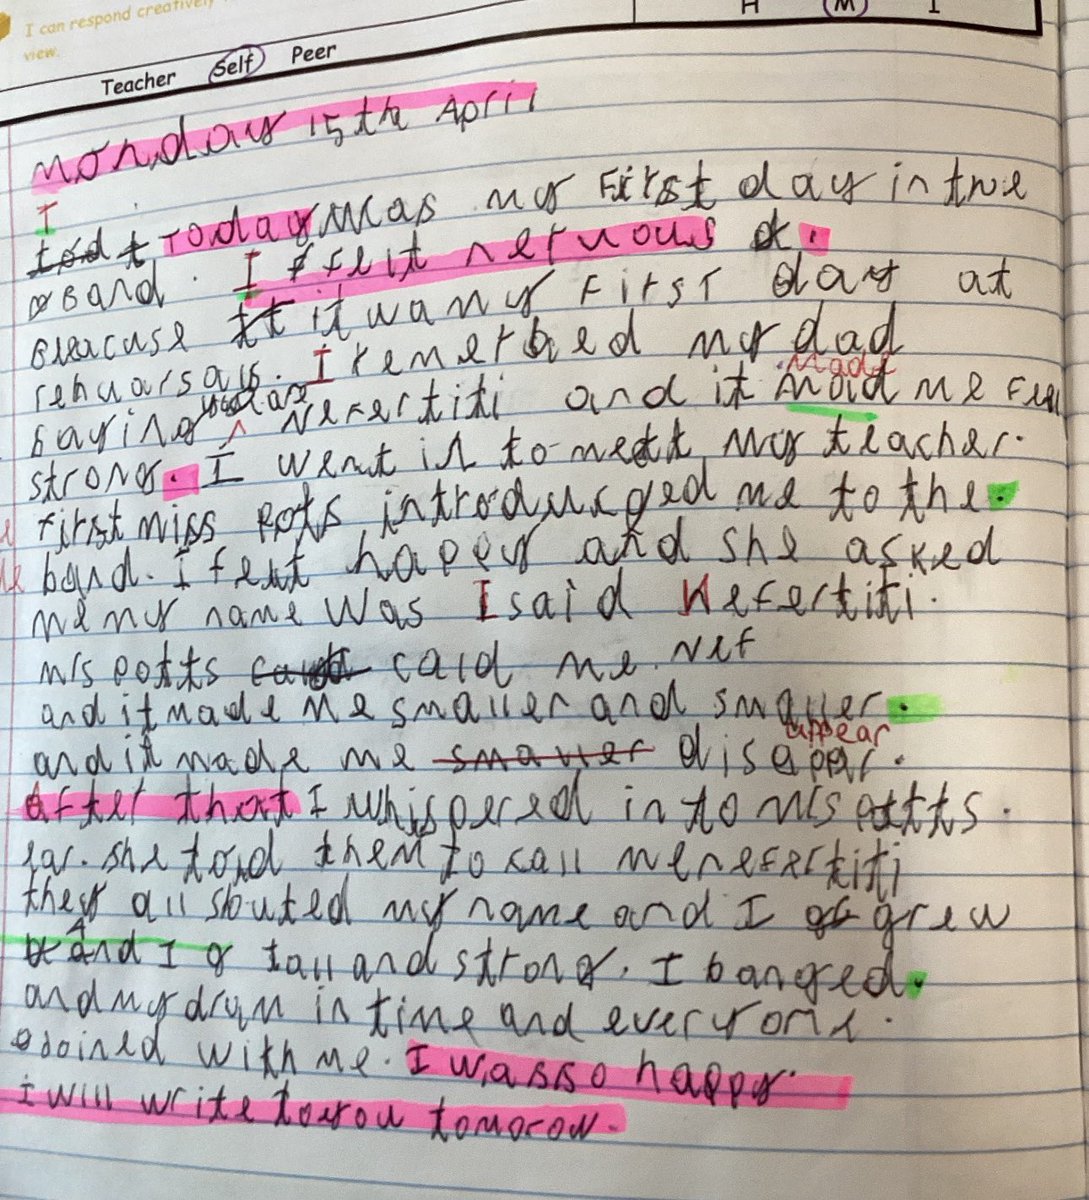 I can respond creatively
view.
H M I
Teacher Self Peer
Monday 15th April
I
Today Was my First day in the
Band. I felt nervous
Beacuse it wa my First day at
rehuarsals. I remerbed my dad
made
saying you are Nefertiti and it moid me Feel
strong. I went in to meet my teacher.
first miss pots introduced me to the.
band. I felt happy and she asked
me my name Was I said Nefertiti.
Mis potts cald me Nef
and it made me smaller and smaller.
appear
and it made me smaller disapper.
After that I whispered in to Mis potts.
ear. she told them to call me nefertiti
they all shouted my name and I grew
And I g tall and strong. I banged.
and my drum in time and everyone.
Joined with me. I was so happy.
i will write to you tomorow.